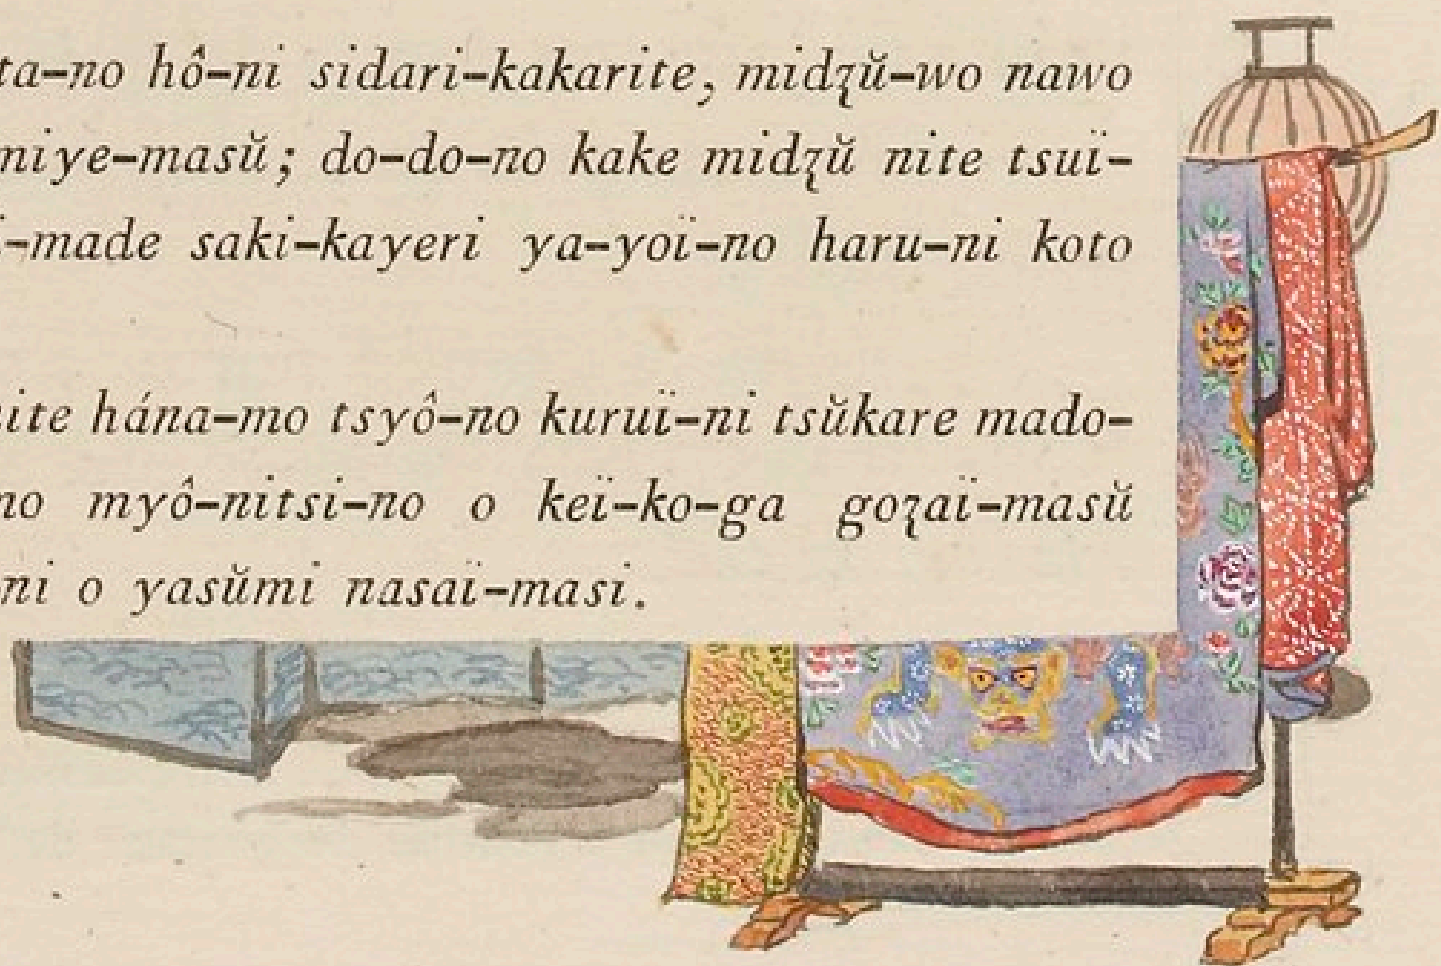 ta–no hô–ni sidari–kakarite, midʒŭ–wo nawo
miye–masŭ; do–do–no kake midʒŭ nite tsuï–
i–made saki–kayeri ya–yoï–no haru–ni koto
ite hána–mo tsyô–no kuruï–ni tsŭkare mado–
no myô–nitsi–no o keï–ko–ga goʒaï–masŭ
ni o yasŭmi nasaï–masi.